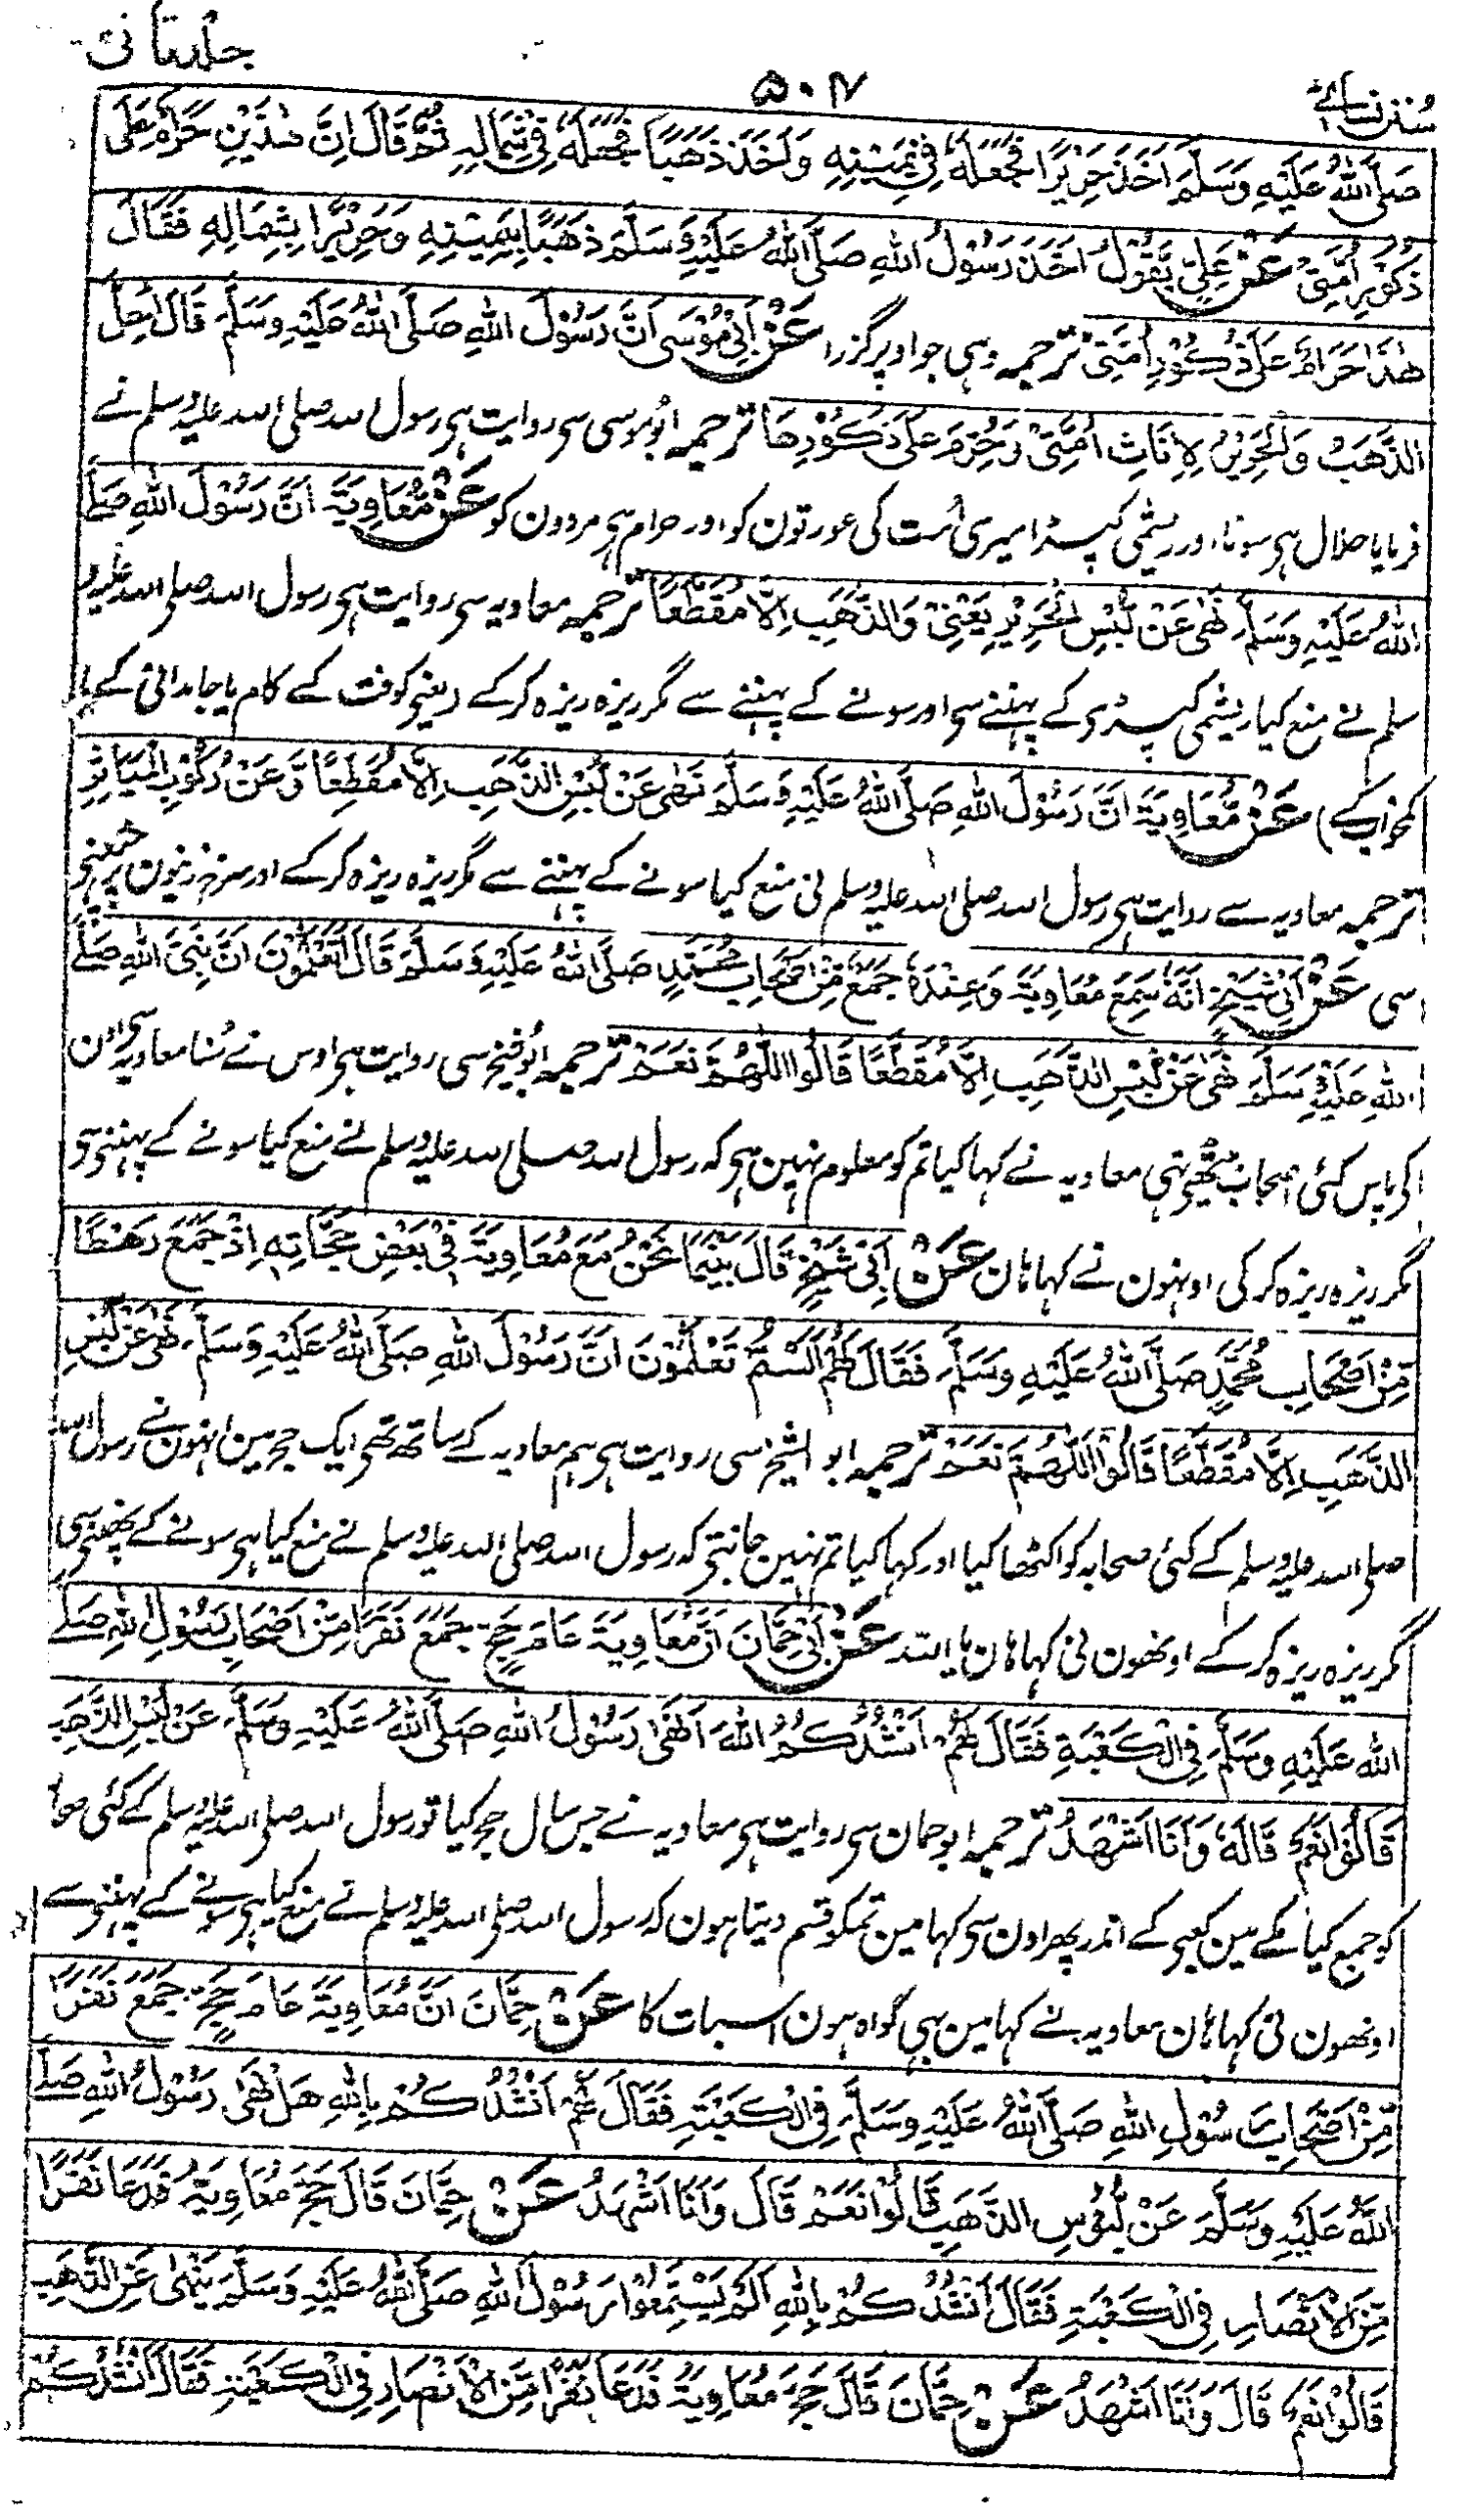 سنن نسائی
۵۰۷
جلد ثانی
صَلَّى اللهُ عَلَيْهِ وَسَلَّمَ اَخَذَ حَرِيْرًا فَجَعَلَهٗ فِيْ يَمِيْنِهٖ وَاَخَذَ ذَهَبًا فَجَعَلَهٗ فِيْ شِمَالِهٖ ثُمَّ قَالَ اِنَّ هٰذَيْنِ حَرَامٌ عَلٰى
ذُكُوْرِ اُمَّتِيْ عَنْ عَلِيٍّ يَقُوْلُ اَخَذَ رَسُوْلُ اللهِ صَلَّى اللهُ عَلَيْهِ وَسَلَّمَ ذَهَبًا بِيَمِيْنِهٖ وَحَرِيْرًا بِشِمَالِهٖ فَقَالَ
هٰذَا حَرَامٌ عَلٰى ذُكُوْرِ اُمَّتِيْ ترجمہ وہی جو اوپر گزرا عَنْ اَبِيْ مُوْسٰى اَنَّ رَسُوْلَ اللهِ صَلَّى اللهُ عَلَيْهِ وَسَلَّمَ قَالَ اُحِلَّ
الذَّهَبُ وَالْحَرِيْرُ لِاِنَاثِ اُمَّتِيْ وَحُرِّمَ عَلٰى ذُكُوْرِهَا ترجمہ ابو موسی سی روایت ہی رسول اللہ صلی اللہ علیہ وسلم نے
فرمایا حلال ہی سونا اور ریشمی کپڑا میری اُمت کی عورتون کو اور حرام ہی مردون کو عَنْ مُّعَاوِيَةَ اَنَّ رَسُوْلَ اللهِ صَلَّى
اللهُ عَلَيْهِ وَسَلَّمَ نَهٰى عَنْ لُبْسِ الْحَرِيْرِ يَعْنِيْ وَالذَّهَبِ اِلَّا مُقَطَّعًا ترجمہ معاویہ سی روایت ہی رسول اللہ صلی اللہ علیہ و
سلم نے منع کیا ریشمی کپڑی کے پہننے سی اور سونے کے پہننے سے مگر ریزہ ریزہ کرکے (یعنی کوفت کے کام یا جامدانی کے یا
کمخواب کے) عَنْ مُّعَاوِيَةَ اَنَّ رَسُوْلَ اللهِ صَلَّى اللهُ عَلَيْهِ وَسَلَّمَ نَهٰى عَنْ لُبْسِ الذَّهَبِ اِلَّا مُقَطَّعًا وَّعَنْ رُكُوْبِ الْمَيَاثِرِ
ترجمہ معاویہ سے روایت ہی رسول اللہ صلی اللہ علیہ وسلم نی منع کیا سونے کے پہننے سے مگر ریزہ ریزہ کرکے اور سرخ زینون پر
سی عَنْ اَبِيْ شَيْخٍ اَنَّهٗ سَمِعَ مُعَاوِيَةَ وَعِنْدَهٗ جَمْعٌ مِّنْ اَصْحَابِ مُحَمَّدٍ صَلَّى اللهُ عَلَيْهِ وَسَلَّمَ قَالَ اَتَعْلَمُوْنَ اَنَّ نَبِيَّ اللهِ صَلَّى
اللهُ عَلَيْهِ وَسَلَّمَ نَهٰى عَنْ لُبْسِ الذَّهَبِ اِلَّا مُقَطَّعًا قَالُوا اللّٰهُمَّ نَعَمْ ترجمہ ابو شیخ سی روایت ہی اوس نے سُنا معاویہ سی اون
کی پاس کئی اصحاب بیٹھی تہی معاویہ نے کہا کیا تم کو معلوم نہین ہی کہ رسول اللہ صلی اللہ علیہ وسلم نے منع کیا سونے کے پہننی سی
مگر ریزہ ریزہ کر کی اونہون نے کہا ہان عَنْ اَبِيْ شَيْخٍ قَالَ بَيْنَمَا نَحْنُ مَعَ مُعَاوِيَةَ فِيْ بَعْضِ حَجَّاتِهٖ اِذْ جَمَعَ رَهْطًا
مِّنْ اَصْحَابِ مُحَمَّدٍ صَلَّى اللهُ عَلَيْهِ وَسَلَّمَ فَقَالَ لَهُمْ اَلَسْتُمْ تَعْلَمُوْنَ اَنَّ رَسُوْلَ اللهِ صَلَّى اللهُ عَلَيْهِ وَسَلَّمَ نَهٰى عَنْ لُبْسِ
الذَّهَبِ اِلَّا مُقَطَّعًا قَالُوْا اللّٰهُمَّ نَعَمْ ترجمہ ابو الشیخ سی روایت ہی ہم معاویہ کے ساتھ تھی ایک حج مین انہون نے رسول اللہ
صلی اللہ علیہ وسلم کے کئی صحابہ کو اکٹھا کیا اور کہا کیا تم نہین جانتی کہ رسول اللہ صلی اللہ علیہ وسلم نے منع کیا ہی سونے کے پہننی سی
مگر ریزہ ریزہ کرکے اونھون نی کہا ہان یا اللہ عَنْ اَبِيْ حِمَّانَ اَنَّ مُعَاوِيَةَ عَامَ حَجَّ جَمَعَ نَفَرًا مِّنْ اَصْحَابِ رَسُوْلِ اللهِ صَلَّى
اللهُ عَلَيْهِ وَسَلَّمَ فِي الْكَعْبَةِ فَقَالَ لَهُمْ اَنْشُدُكُمُ اللهَ اَنَهٰى رَسُوْلُ اللهِ صَلَّى اللهُ عَلَيْهِ وَسَلَّمَ عَنْ لُبْسِ الذَّهَبِ
قَالُوْا نَعَمْ قَالَ وَاَنَا اَشْهَدُ ترجمہ ابو حمان سی روایت ہی معاویہ نے جس سال حج کیا تو رسول اللہ صلی اللہ علیہ وسلم کے کئی صحابہ
کو جمع کیا مکے مین کعبی کے اندر پھر اون سی کہا مین تمکو قسم دیتا ہون کہ رسول اللہ صلی اللہ علیہ وسلم نے منع کیا ہی سونے کے پہننے سے
اونھون نی کہا ہان معاویہ نے کہا مین بہی گواہ ہون اسبات کا عَنْ حِمَّانَ اَنَّ مُعَاوِيَةَ عَامَ حَجَّ جَمَعَ نَفَرًا
مِّنْ اَصْحَابِ رَسُوْلِ اللهِ صَلَّى اللهُ عَلَيْهِ وَسَلَّمَ فِي الْكَعْبَةِ فَقَالَ لَهُمْ اَنْشُدُكُمْ بِاللهِ هَلْ نَهٰى رَسُوْلُ اللهِ صَلَّى
اللهُ عَلَيْهِ وَسَلَّمَ عَنْ لُبُوْسِ الذَّهَبِ قَالُوْا نَعَمْ قَالَ وَاَنَا اَشْهَدُ عَنْ حِمَّانَ قَالَ حَجَّ مُعَاوِيَةُ فَدَعَا نَفَرًا
مِّنَ الْاَنْصَارِ فِي الْكَعْبَةِ فَقَالَ اَنْشُدُكُمْ بِاللهِ اَلَمْ تَسْمَعُوْا رَسُوْلَ اللهِ صَلَّى اللهُ عَلَيْهِ وَسَلَّمَ يَنْهٰى عَنِ الذَّهَبِ
قَالُوْا نَعَمْ قَالَ وَاَنَا اَشْهَدُ عَنْ حِمَّانَ قَالَ حَجَّ مُعَاوِيَةُ فَدَعَا نَفَرًا مِّنَ الْاَنْصَارِ فِي الْكَعْبَةِ فَقَالَ اَنْشُدُكُمْ